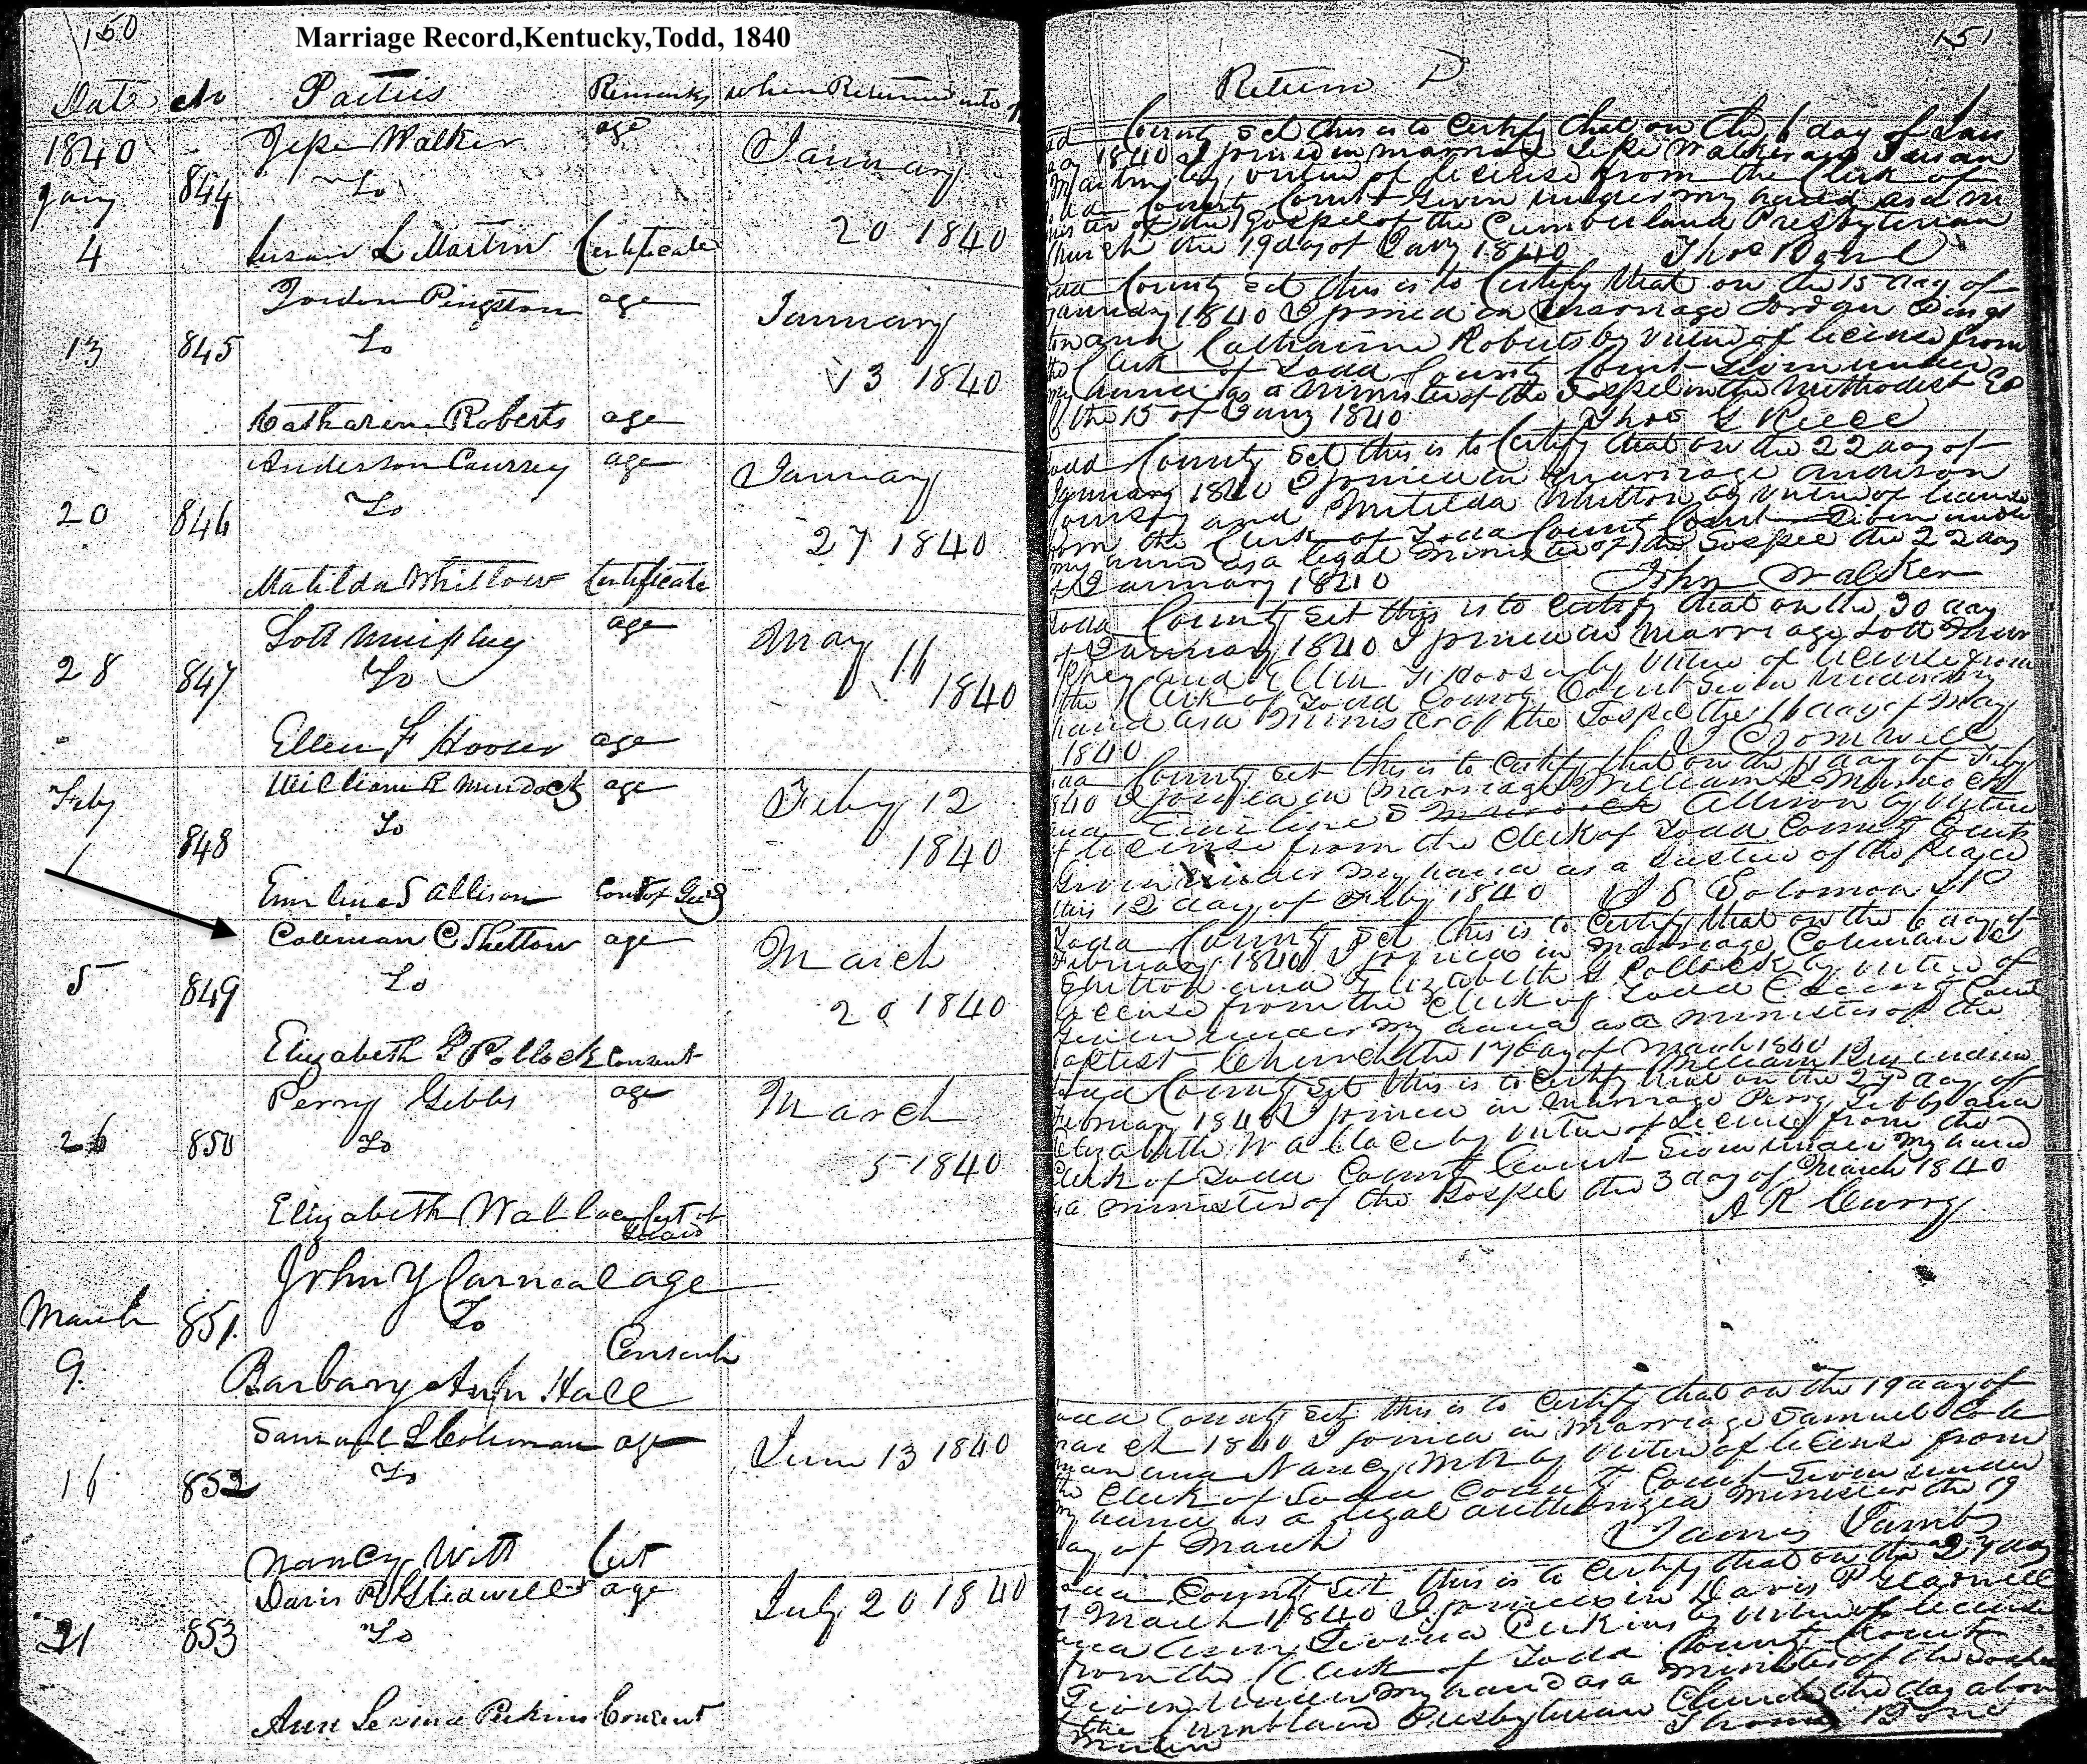 150
Marriage Record,Kentucky,Todd, 1840
Date No Parties Remarks when Returned into
1840 Jesse Walker age January
Jany 844 To
4 Susan L Martin Certificate 20 1840
Jordon Pingston age January
13 845 To
13 1840
Catharine Roberts age
Anderson Coursey age January
20 846 To
27 1840
Matilda Whitlow Certificate
Lott Murphey age May 11
28 847 To 1840
Ellen F Hooser age
Feby William R Murdock age Feby 12
1 848 To 1840
Emiline S Allison Const of Gud
Coleman C Shelton age March
5 849 To
20 1840
Elizabeth G Pollock Consent
Perry Gibbs age March
26 850 To
5 1840
Elizabeth Wallace Cert of
Guard
John Y Carneal age
March 851 To
Consent
9 Barbary Ann Hall
Samuel L Coleman age June 13 1840
16 852 To
Nancy Witt Cert
Davis R Gladwell age July 20 1840
21 853 To
Ann Levina Perkins Consent
151
Return
County Sct this is to Certify that on the 6 day of Jan
1840 I joined in marriage Jesse Walker and Susan
Martin by virtue of license from the Clerk of
County Court Given under my hand as a
of the Gospel of the Cumberland Presbyterian
Church the 19 day of Jany 1840 Thos Bone
County Sct this is to Certify that on the 15 day of
January 1840 I joined in marriage Jordon Pings
ton and Catharine Roberts by virtue of license from
the Clerk of Todd County Court Given under
my hand as a minister of the Gospel in the Methodist
the 15 of Jany 1840 Thos G Reece
Todd County Sct this is to Certify that on the 22 day of
January 1840 I joined in marriage Anderson
Coursey and Matilda Whitton by virtue of license
from the Clerk of Todd County Court Given under
my hand as a legal minister of the Gospel the 22 day
of January 1840 John Walker
Todd County Sct this is to Certify that on the 30 day
of January 1840 I joined in marriage Lott Mur
phey and Ellen F Hooser by virtue of license from
the Clerk of Todd County Court Given under my
hand as a minister of the Gospel the 16 day of May
1840
County Sct this is to Certify that on the 11 day of Feby
1840 I joined in marriage William R Murdock
and Emiline S Allison by virtue
of license from the Clerk of Todd County Court
Given under my hand as a Justice of the Peace
this 12 day of Feby 1840 Solomon JP
Todd County Sct this is to Certify that on the 6 day of
February 1840 I joined in marriage Coleman C
Shelton and Elizabeth G Pollock by virtue of
license from the Clerk of Todd County Court
Given under my hand as a minister of the
Baptist Church the 17 day of March 1840
William
Todd County Sct this is to Certify that on the 27 day of
February 1840 I joined in marriage Perry Gibbs and
Elizabeth Wallace by virtue of license from the
Clerk of Todd County Court Given under my hand
as a minister of the Gospel the 3 day of March 1840
A R Curry
County Sct this is to Certify that on the 19 day of
March 1840 I joined in marriage Samuel Cole
man and Nancy Witt by virtue of license from
the Clerk of Todd County Court Given under
my hand as a legal authorized minister the 19
day of March James Lamb
County Sct this is to Certify that on the 24 day
of March 1840 I joined in Davis R Gladwell
and Ann Levina Perkins by virtue of license
from the Clerk of Todd County Court
Given under my hand as a minister of the Gospel
of the Cumberland Presbyterian Church the day above
written Thomas Bone